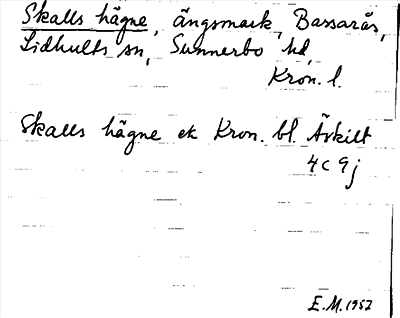 Skalls hägne, ängsmark, Bassarås,
Lidhults sn, Sunnerbo hd,
Kron. l.
Skalls hägne ek Kron. bl. Äskilt
4c 9j
E.M. 1957